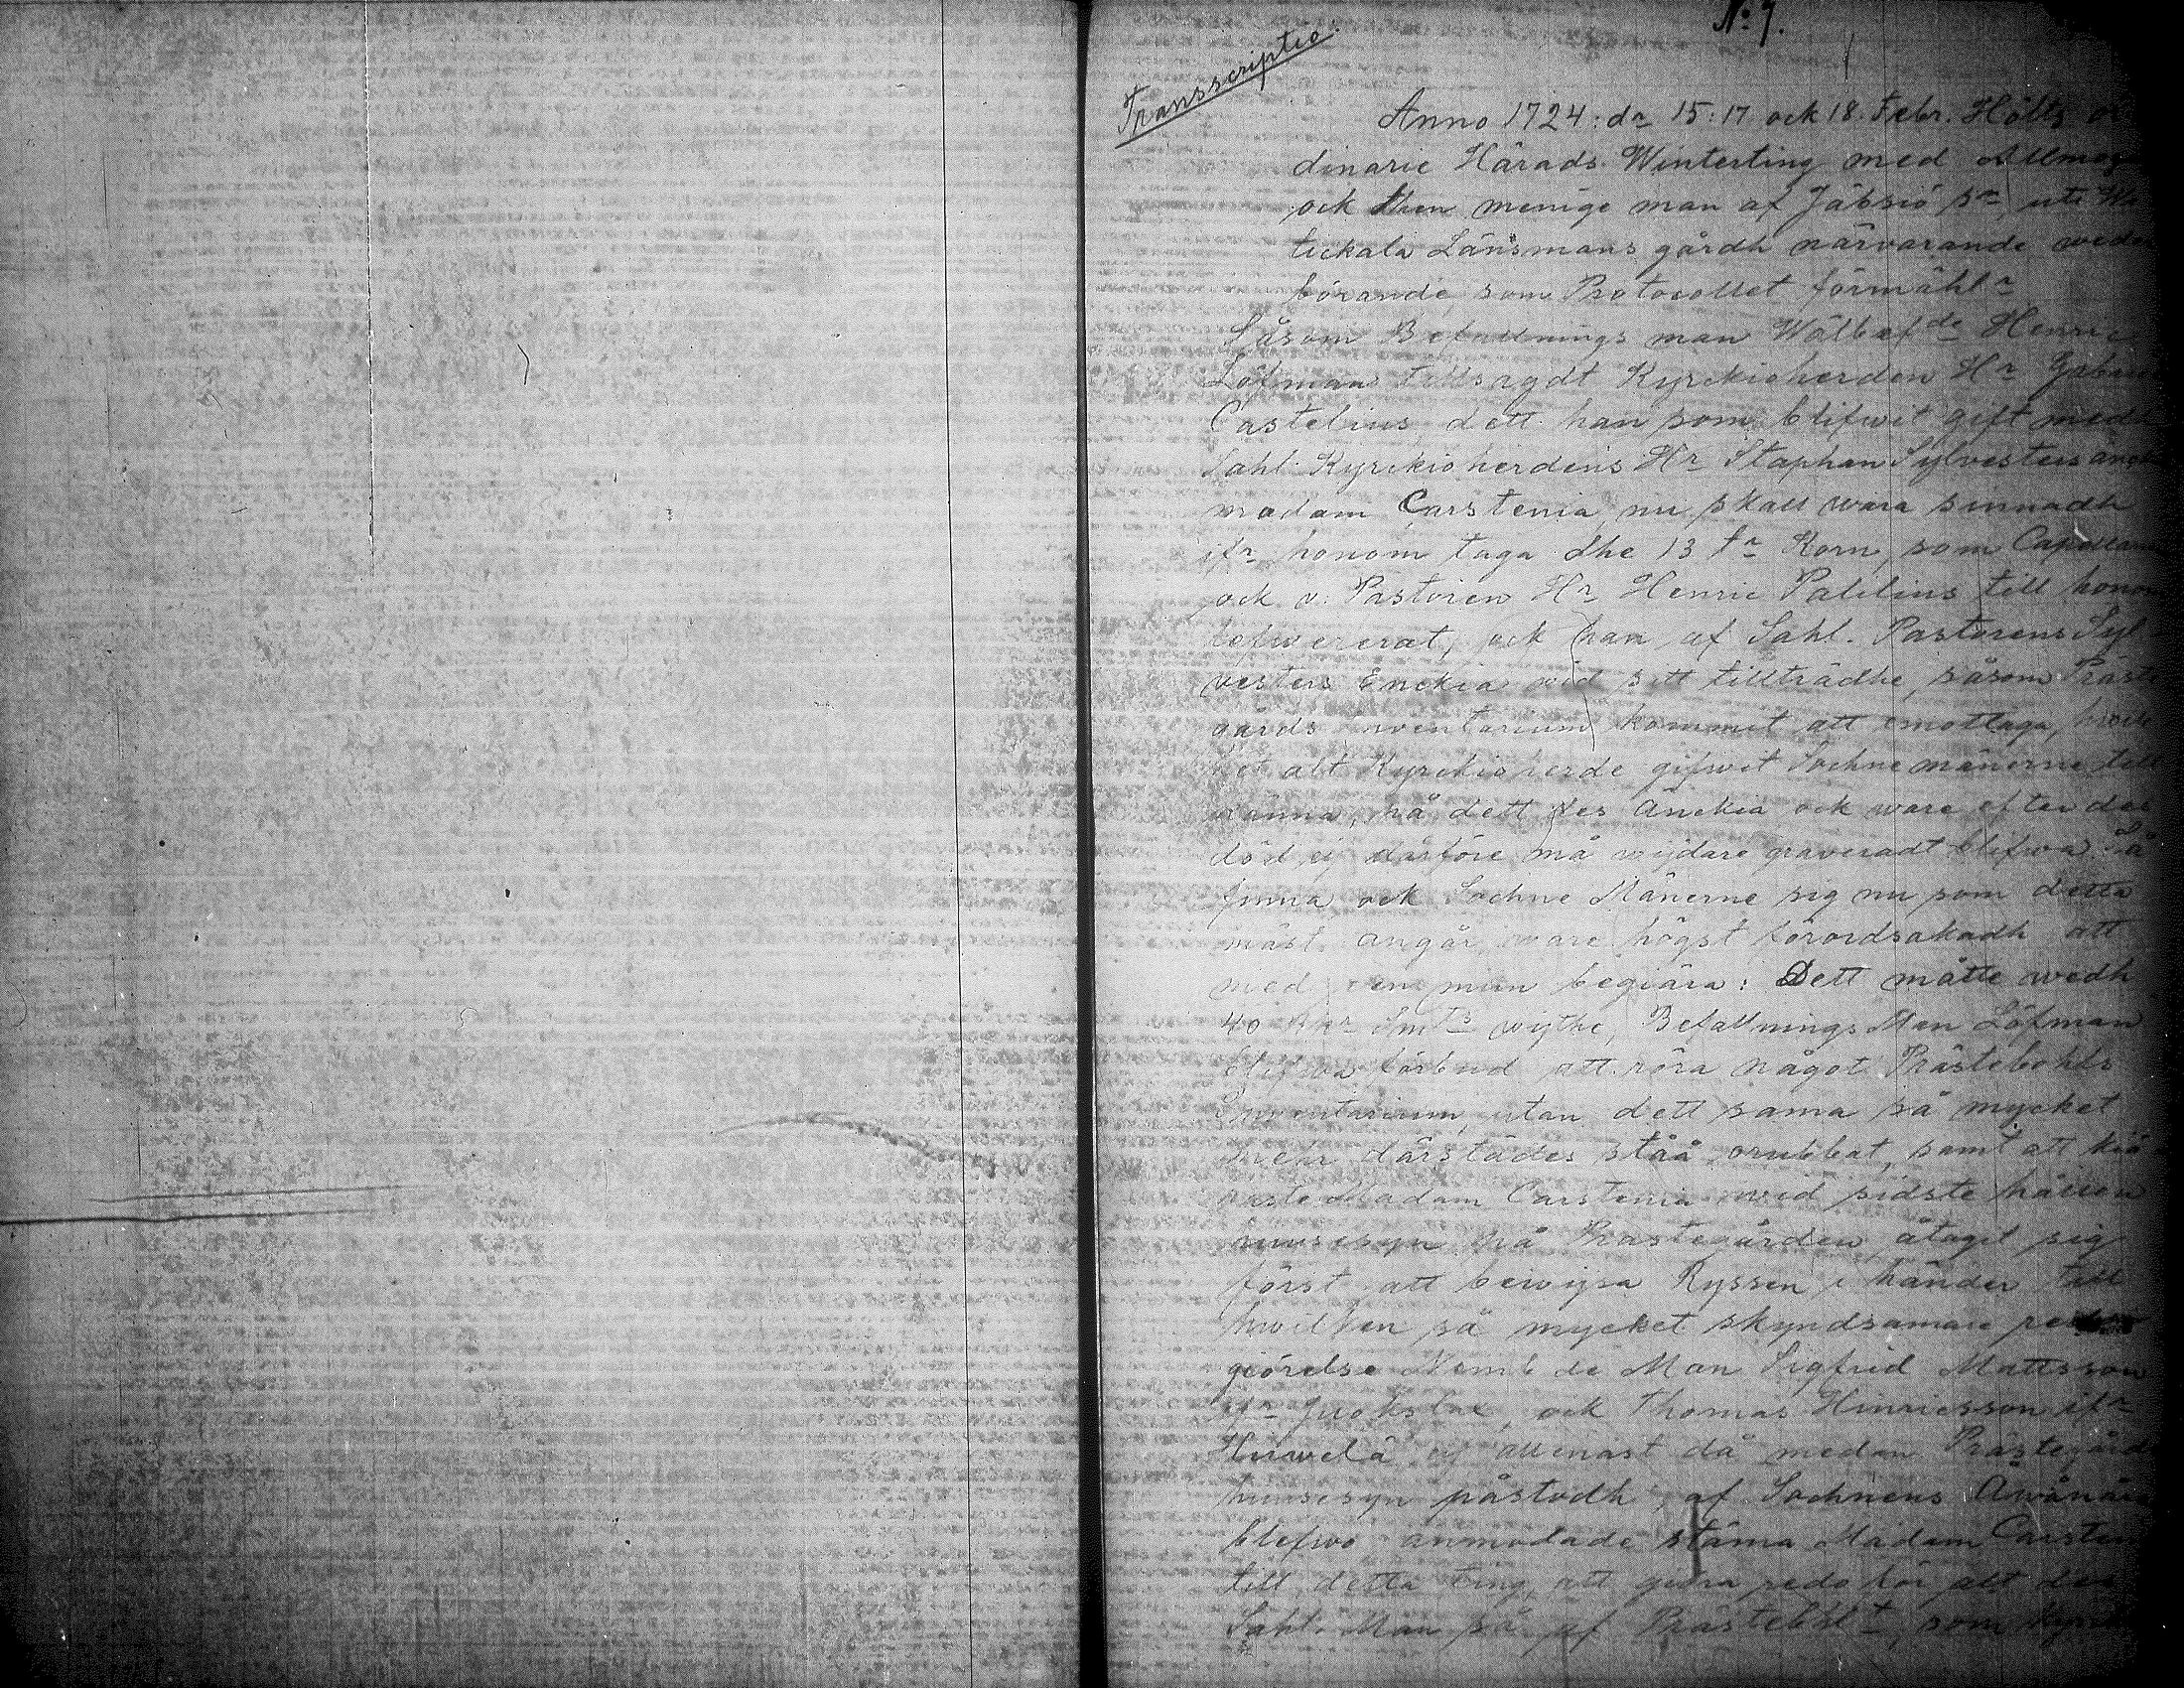 No 7.
Transscriptio.
Anno 1724: dn 15: 17 ock 18. Febr. Hölts
dinarie Härads Winterting med Allmoge
ock then menige man af Jäbsiö sn uti
tickala Länsmans gårdh närvarande weder
börande, som Protocollet förmähln
Såsom Befallnings man Wälbefde Henric
Löfman tillsagdt Kyrckioherden Hr Gabriel
Castelius, dett han som blifwit gift med
Sahl. Kyrckioherdens Hr Staphan Sylvesters
madam Carstenia, nu skall wara sinnadh
ifn honom taga dhe 13 tr Korn, som Capellan
ock v. Pastoren Hr Henric Palilius till honom
lefwererat, ock han af Sahl. Pastorens Syl-
vesters Enckia wid sitt tillträdhe, såsom Präste
gårds inventarium kommit att emottaga,
ket alt Kyrckioherde gifwit Sochnemänerne till
känna, på dett des Änckia ock ware efter des
död ej därföre må wijdare graveradt blifwa. Så
finna ock Sochne Mänerne sig nu som detta
mäst angår, ware högst förordsakadh att
med en mun begiära: Dett måtte wedh
40 Smts wythe, Befallnings Man Löfman
blifwa förbud att röra något Prästebohls
Inventarium, utan dett sama så mycket
mehr därstädes ståå orubbat, samt att kiä
raste Madam Carstenia wid sidste hållen
huusesyn på Prästegården, åtagit sig
först att bewijsa Ryssen i händer
hwilken så mycket skyndsamare redo
giörelse Nembde Man Sigfrid Mattsson
ifn Juokslax, ock Thomas Hinricsson ifn
Hurvelä ej allenast då medan Prästegårds
huusesyn påstodh, af Sochnens
blefwo anmodade stäma Madam Carsten
till detta ting, att giöra redo för alt des
Sahl. Man på af Prästebhlt, som